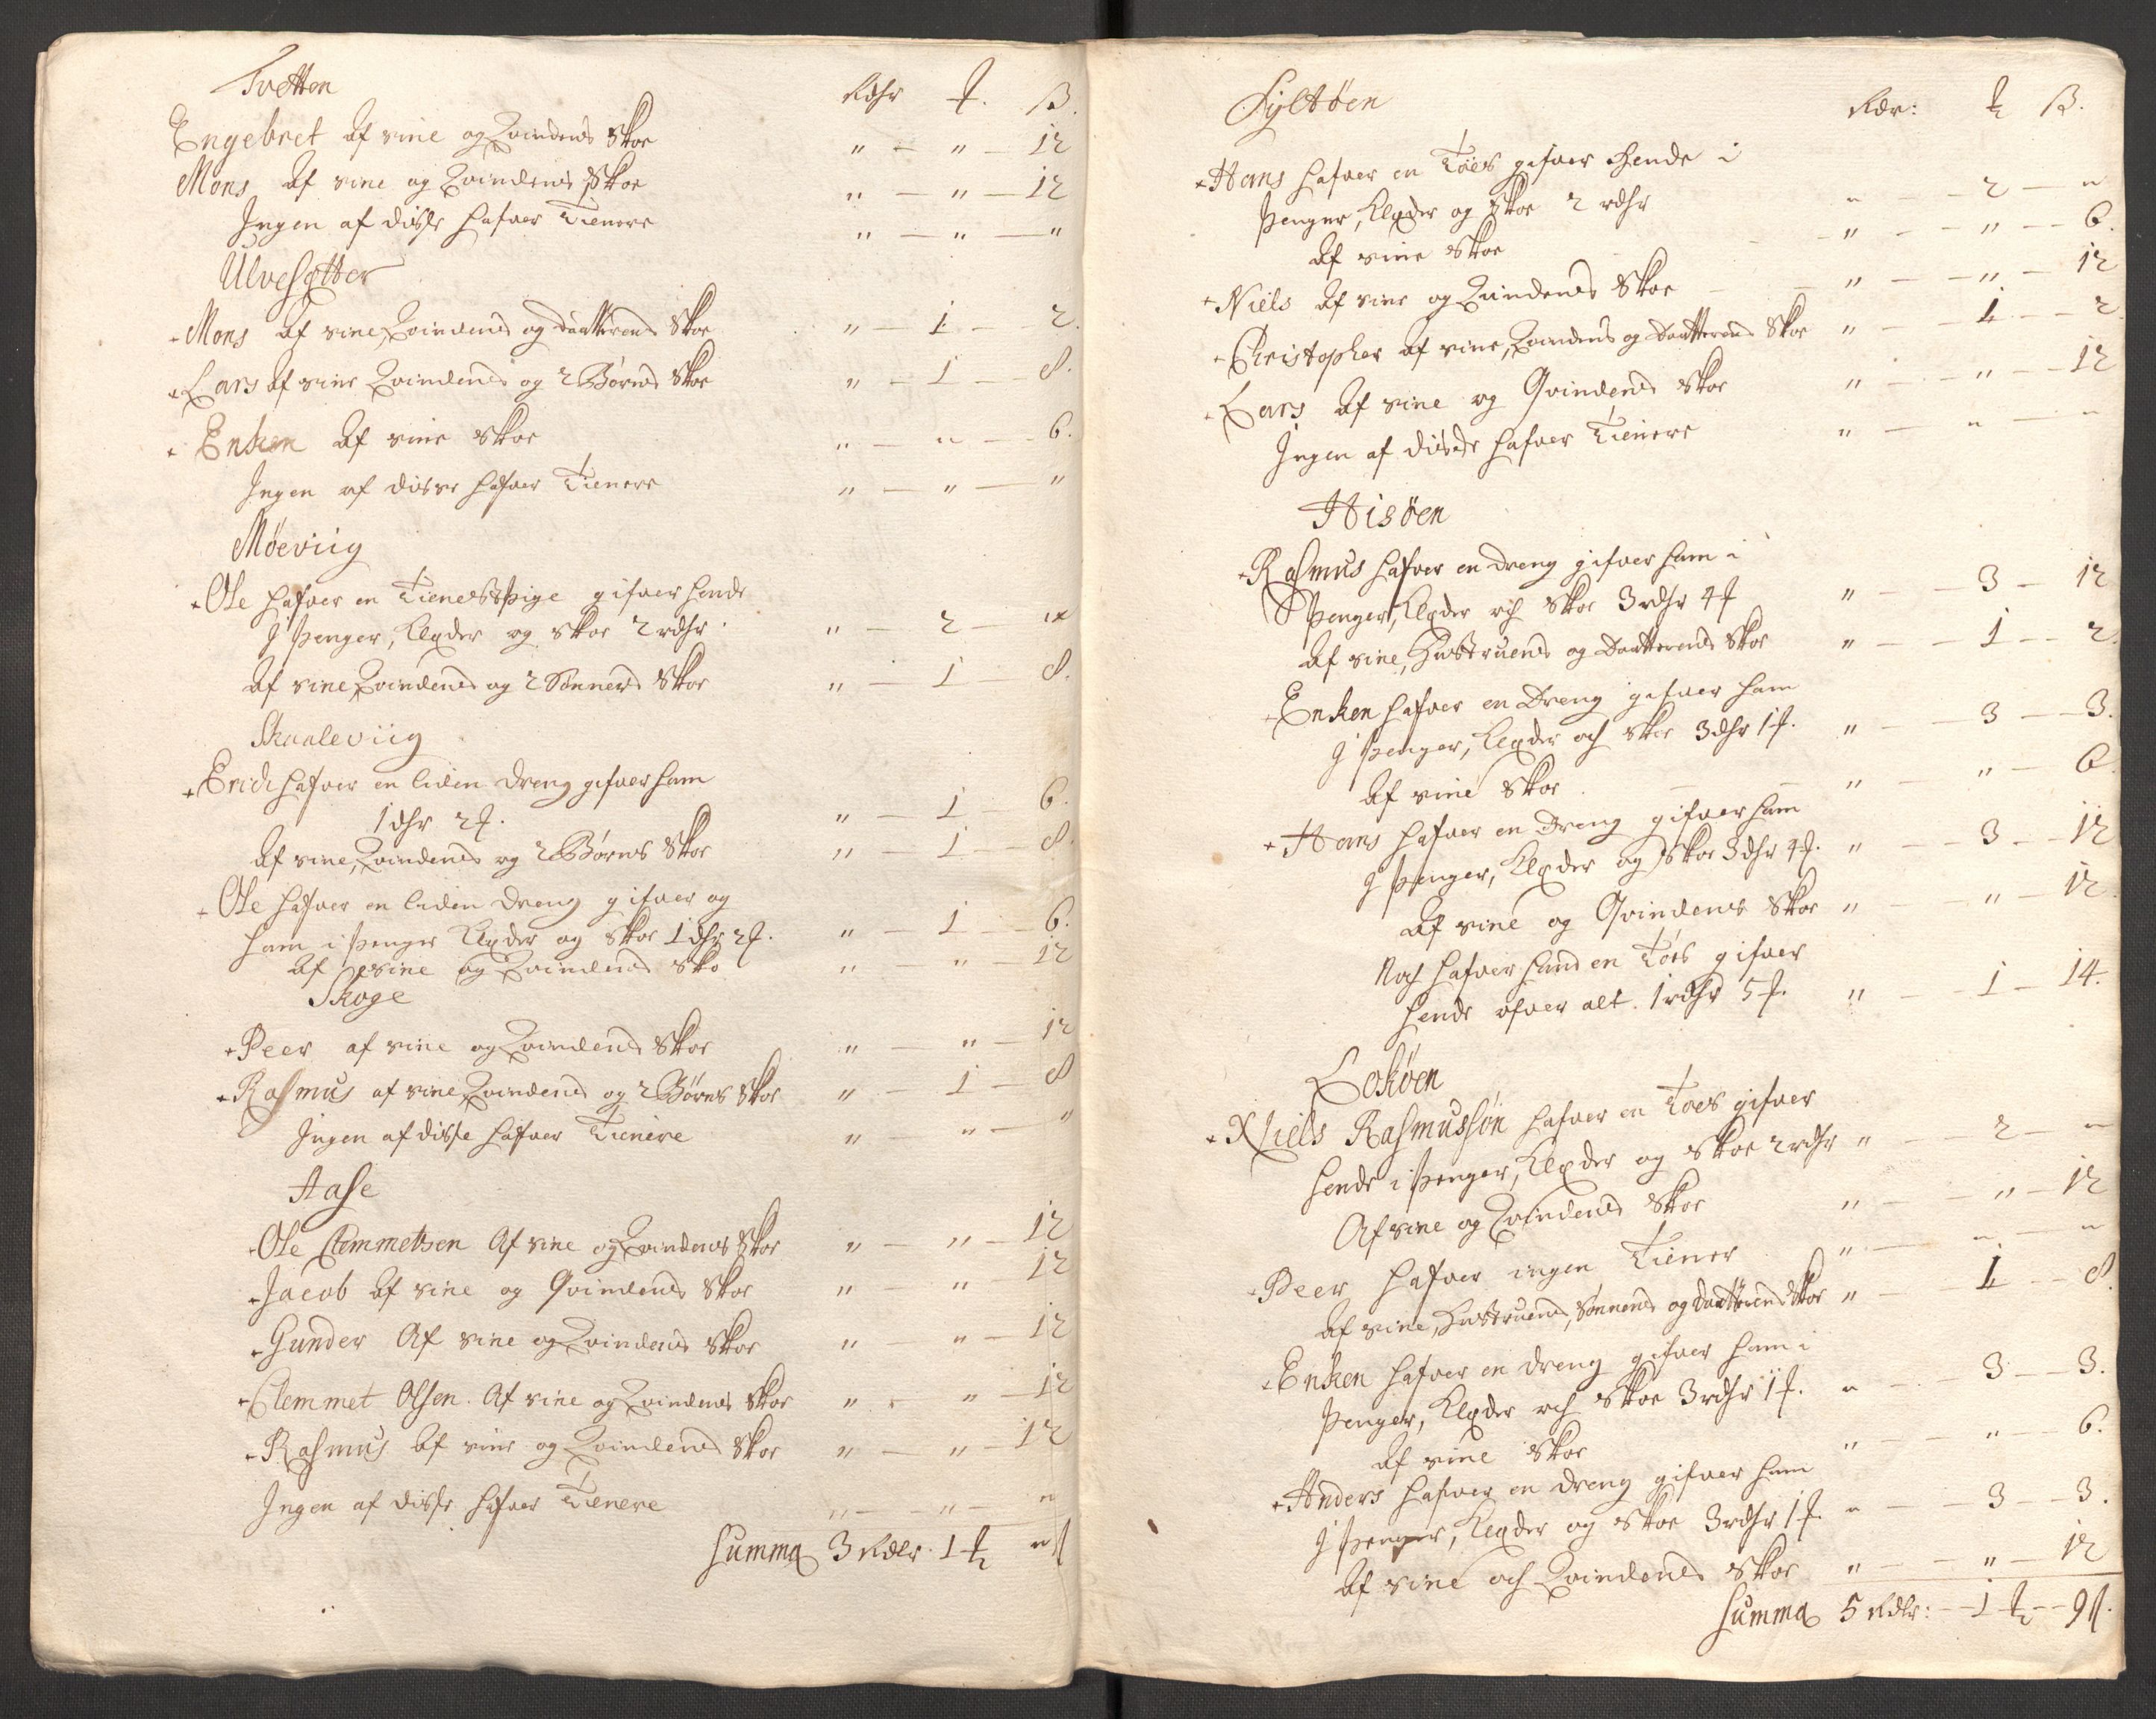 Tvetten Rdlr ƒ. ß.
Engebret Af sine og Qvindens Skoe " — " — 12
Mons Af sine og Qvindens Skoe " — " — 12
Ingen af disse hafver Tienere " — " — "
Ulvesætter
Mons Af sine, Qvindens og Daatterens Skoe " — 1 — 2.
Lars Af sine Qvindens og 2 Børns Skoe " — 1 — 8.
Enken Af sine Skoe " — " — 6.
Ingen af disse hafver Tienere " — " — "
Møeviig
Ole hafver en Tieneste Pige gifver hende
J Penger, Klæder og Skoe 2 rdlr " — 2 — "
Af sine, Qvindens og 2 Sønners Skoe " — 1 — 8.
Skaaleviig
Erich hafver en liden Dreng gifver ham
1 dlr 2 ƒ. " — 1 — 6.
Af sine, Qvindens og 2 Børns Skoe " — 1 — 8.
Ole hafver en liden Dreng gifver og
ham i Penger Klæder og Skoe 1 dlr 2 ƒ. " — 1 — 6.
Af sine og Qvindens Sko " — " — 12
Skoge
Peer af sine og Qvindens Skoe " — " — 12
Rasmus af sine, Qvindens og 2 Børns Skoe " — 1 — 8
Ingen af disse hafver Tienere " — " — "
Aase
Ole Clemmetsen Af sine og Qvindens Skoe " — " — 12
Jacob Af sine og Qvindens Skoe " — " — 12
Gunder Af sine og Qvindens Skoe " — " — 12
Clemmet Olsen. Af sine og Qvindens Skoe " — " — 12
Rasmus Af sine og Qvindens Skoe " — " — 12
Ingen af disse hafver Tienere " — " — "
Summa 3 Rdlr. 1 ƒ " ß
Syltøen Rdr: ƒ ß.
Hans hafver en Tøes gifver hende i
Penger, Klæder og Skoe 2 rdlr " — 2 — "
Af sine Skoe " — " — 6.
Niels Af sine og Qvindens Skoe " — " — 12
Christopher af sine, Qvindens og Daatterens Skoe " — 1 — 2
Lars Af sine og Qvindens Skoe " — " — 12
Ingen af disse hafver Tienere " — " — "
Hisøen
Rasmus hafver en Dreng gifver ham i
Penger, Klæder och Skoe 3 rdlr 4 ƒ " — 3 — 12
Af sine, Hustruens og Daatterens Skoe " — 1 — 2.
Enken hafver en Dreng gifver ham
J Penger, Klæder och Skoe 3 dlr 1 ƒ. " — 3 — 3.
Af sine Skoe " — " — 6
Hans hafver en Dreng gifver ham
J Penger, Klæder og Skoe 3 dlr 4 ƒ. " — 3 — 12
Af sine og Qvindens Skoe " — " — 12
Noch hafver hand en Tøes gifver
hende ofver alt. 1 rdlr 5 ƒ. " — 1 — 14.
Lokøen
Niels Rasmussøn hafver en Tøes gifver
hende i Penger, Klæder og Skoe 2 rdlr " — 2 — "
Af sine og Qvindens Skoe " — " — 12
Peer hafver ingen Tiener " — " — "
Af sine, Hustruens, Sønnens og Daatterens Skoe " — 1 — 8.
Enken hafver en Dreng gifver ham i
Penger, Klæder och Skoe 3 rdlr 1 ƒ. " — 3 — 3.
Af sine Skoe " — " — 6.
Anders hafver en Dreng gifver ham
J Penger, Klæder og Skoe 3 rdlr 1 ƒ. " — 3 — 3.
Af sine och Qvindens Skoe " — " — 12
Summa 5 Rdlr: — 1 ƒ — 9 ß.